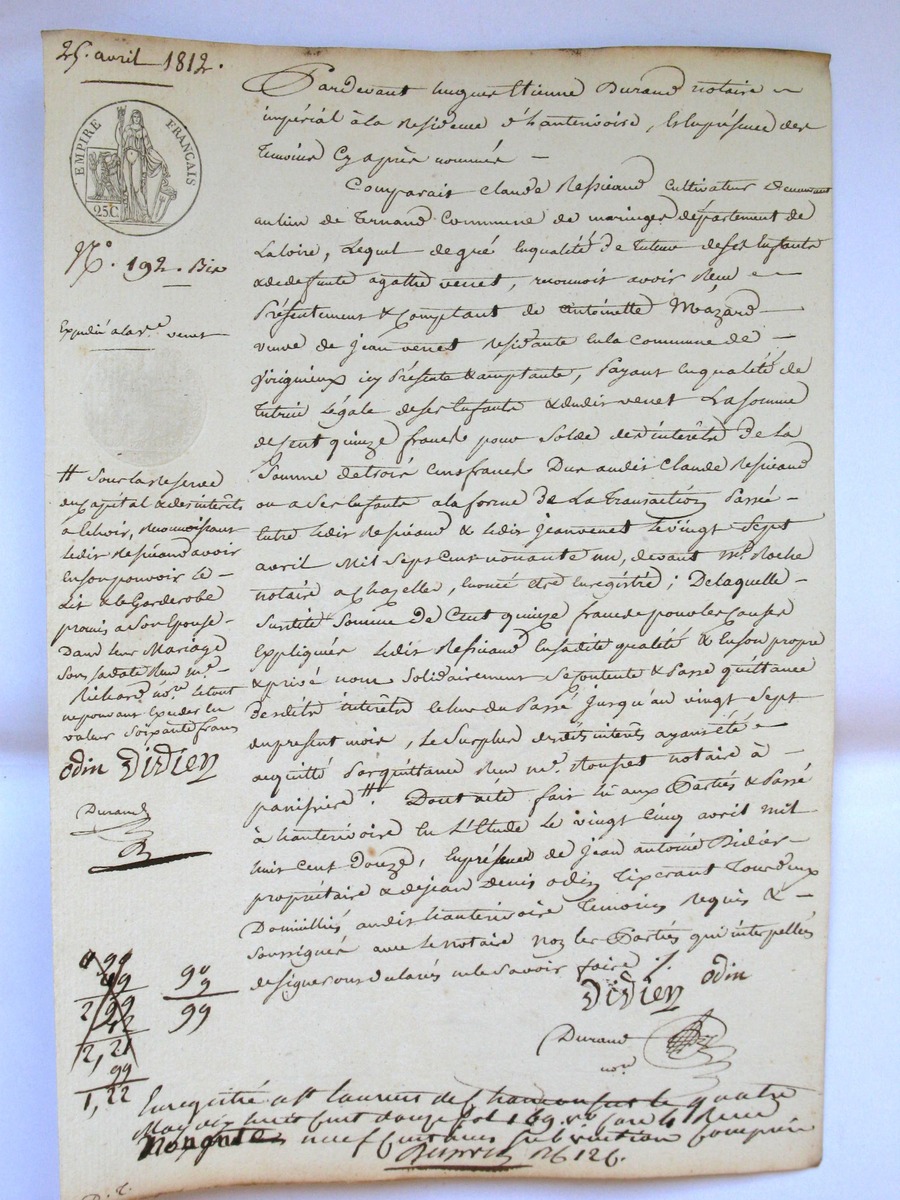 25. avril 1812.
EMPIRE FRANÇAIS
25C
N.° 192. Bis
Expédié à la v.e venet
Pardevant hugues Etienne Durand notaire
impérial à la Residence d'hauterivoire, & En présence des
Temoins Cy après nommés
Comparait Claude Ressicaud Cultivateur demeurant
au lieu de Fernand Commune de maringes département de
La loire, Lequel de gré En qualité de Tuteur de ses Enfants
& de defunte agathe venet, reconnoit avoir Reçu
Présentement & Comptant de antoinette Mazard
veuve de jean venet residante En la Commune de
Virignieux icy Présente & acceptante, Payant En qualité de
Tutrice Légale de ses Enfants & dudit venet La somme
de Cent quinze francs pour Solde des intérêts de La
Somme de trois Cens francs Due audit Claude Ressicaud
ou a Ses Enfants a la forme de La Transaction Passé
Entre Ledit Ressicaud & Ledit jean venet Le vingt Sept
avril Mil Sept Cent nonante un, devant M.e Roche
notaire a Chazelle, Enoncé être Enregistrée; De laquelle
Susdite Somme de Cent quinze francs pour les Causes
Expliquées Ledit Ressicaud En sadite qualité & En son propre
& privé nom Solidairement Se Contente & Passe quittance
Desdits intérêts Echus du Passé jusqu'au vingt Sept
du present mois, Le Surplus desdits intérêts ayant été
acquitté Par quittance Reçue M.e Roupet notaire à
panissiere #. Dont acte fait Lu aux Parties & Passé
à hauterivoire En L'Etude Le vingt Cinq avril mil
huit Cent Douze, En présence de jean antoine Didier
propriétaire & de jean Denis odin Tixerant Tous deux
Domiciliés audit hauterivoire Temoins Requis &
Soussignés avec Le notaire non les Parties qui interpellés
de signer ont declarés ne le Savoir faire ./.
DiDier odin
Durand
no.re
# Sous la Reserve
du Capital & des interêts
a Echoir, Reconnoissant
Ledit Ressicaud avoir
En son pouvoir Le
Lit & le Garderobe
promis a Son Epouse
Dans leur Mariage
Sous sa date Reçu M.e
Richard no.re Le tout
ne pouvant Exceder la
valeur Soixante francs
odin DiDier
Durand
99
90
9
99
2,21
99
1,22
Enregistré a St laurent de Chamousset le quatre
May dix huit cent douze fol 169 v° Case 4 Reçu
nonante neuf Centimes Subvention Comprise